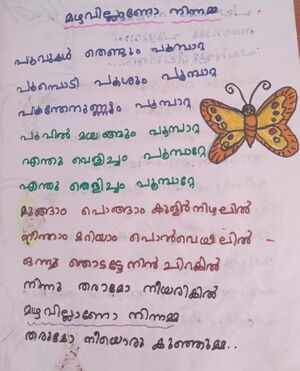 മഴവില്ലാണോ നിന്നമ്മ
പൂവുകൾ തെണ്ടും പൂമ്പാറ്റ
പൂമ്പൊടി പൂശും പൂമ്പാറ്റ
പൂന്തേനുണ്ണും പൂമ്പാറ്റ
പൂവിൽ മയങ്ങും പൂമ്പാറ്റ
എന്തു വെളിച്ചം പൂമ്പാറ്റേ
എന്തു തെളിച്ചം പൂമ്പാറ്റേ
മുങ്ങാം പൊങ്ങാം കുളിർനിഴലിൽ
നീന്താം മറിയാം പൊൻവെയിലിൽ
ഒന്നു ഞൊട്ടട്ടേ നിൻ ചിറകിൽ
നിന്നു തരാമോ നീയരികിൽ
മഴവില്ലാണോ നിന്നമ്മ
തരുമോ നീയൊരു കുഞ്ഞുമ്മ..